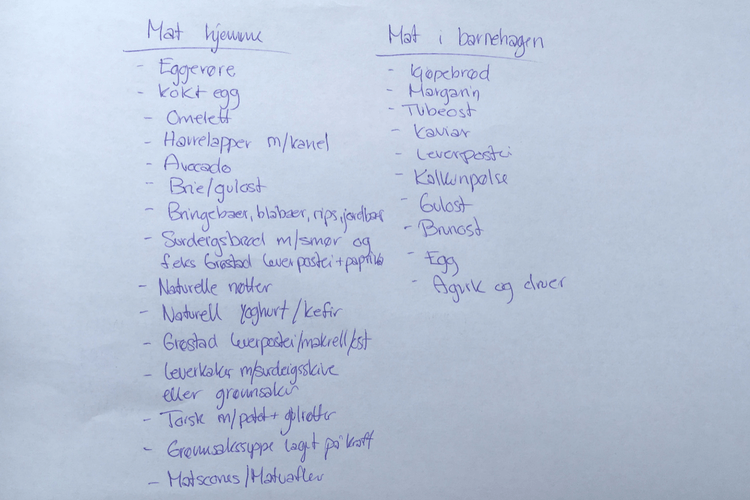 Mat hjemme
- Eggerøre
- Kokt egg
- Omelett
- Havrelapper m/kanel
- Avocado
- Brie/gulost
- Bringebær, blåbær, rips, jordbær
- Surdeigsbrød m/smør og
f.eks Grøstad leverpostei + paprika
- Naturelle nøtter
- Naturell yoghurt/kefir
- Grøstad leverpostei/makrell/ost
- Leverkaker m/surdeigsskive
eller grønnsaker
- Torsk m/potet + gulrøtter
- Grønnsakssuppe laget på kraft
- Matscones/Matvafler
Mat i barnehagen
- Kjøpebrød
- Margarin
- Tubeost
- Kaviar
- Leverpostei
- Kalkunpølse
- Gulost
- Brunost
- Egg
- Agurk og druer